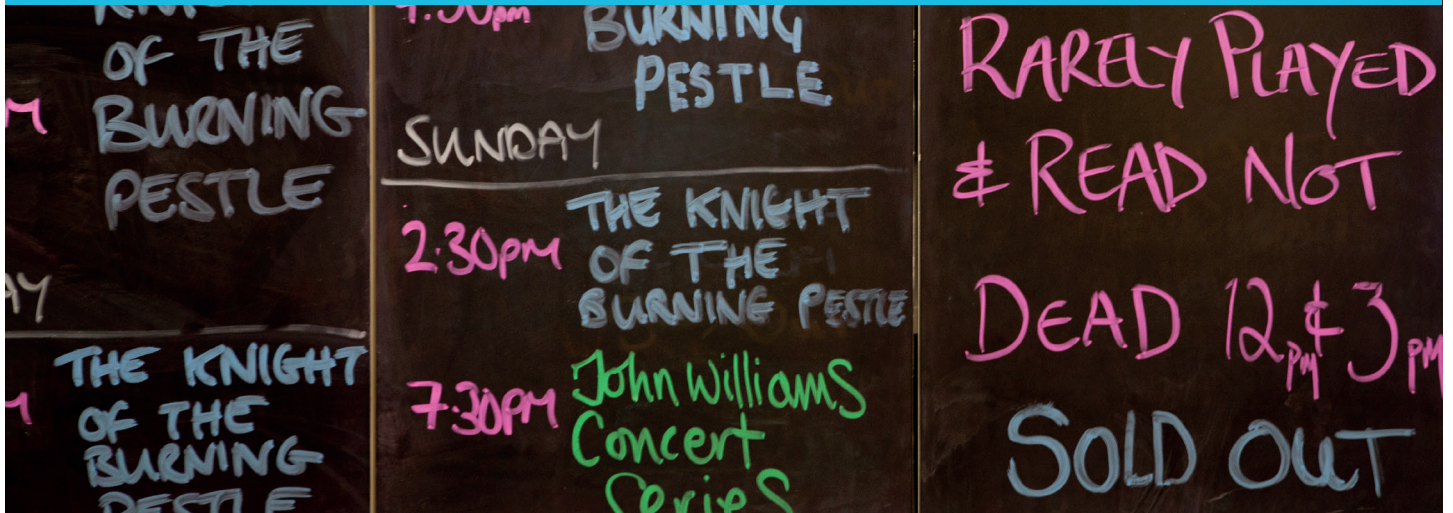 KNIGHT
OF THE
BURNING
PESTLE
AY
THE KNIGHT
OF THE
BURNING
PESTLE
7.30pm
BURNING
PESTLE
SUNDAY
2.30pm
THE KNIGHT
OF THE
BURNING PESTLE
7.30PM
John Williams
Concert
Series
RARELY PLAYED
& READ NOT
DEAD 12pm & 3pm
SOLD OUT